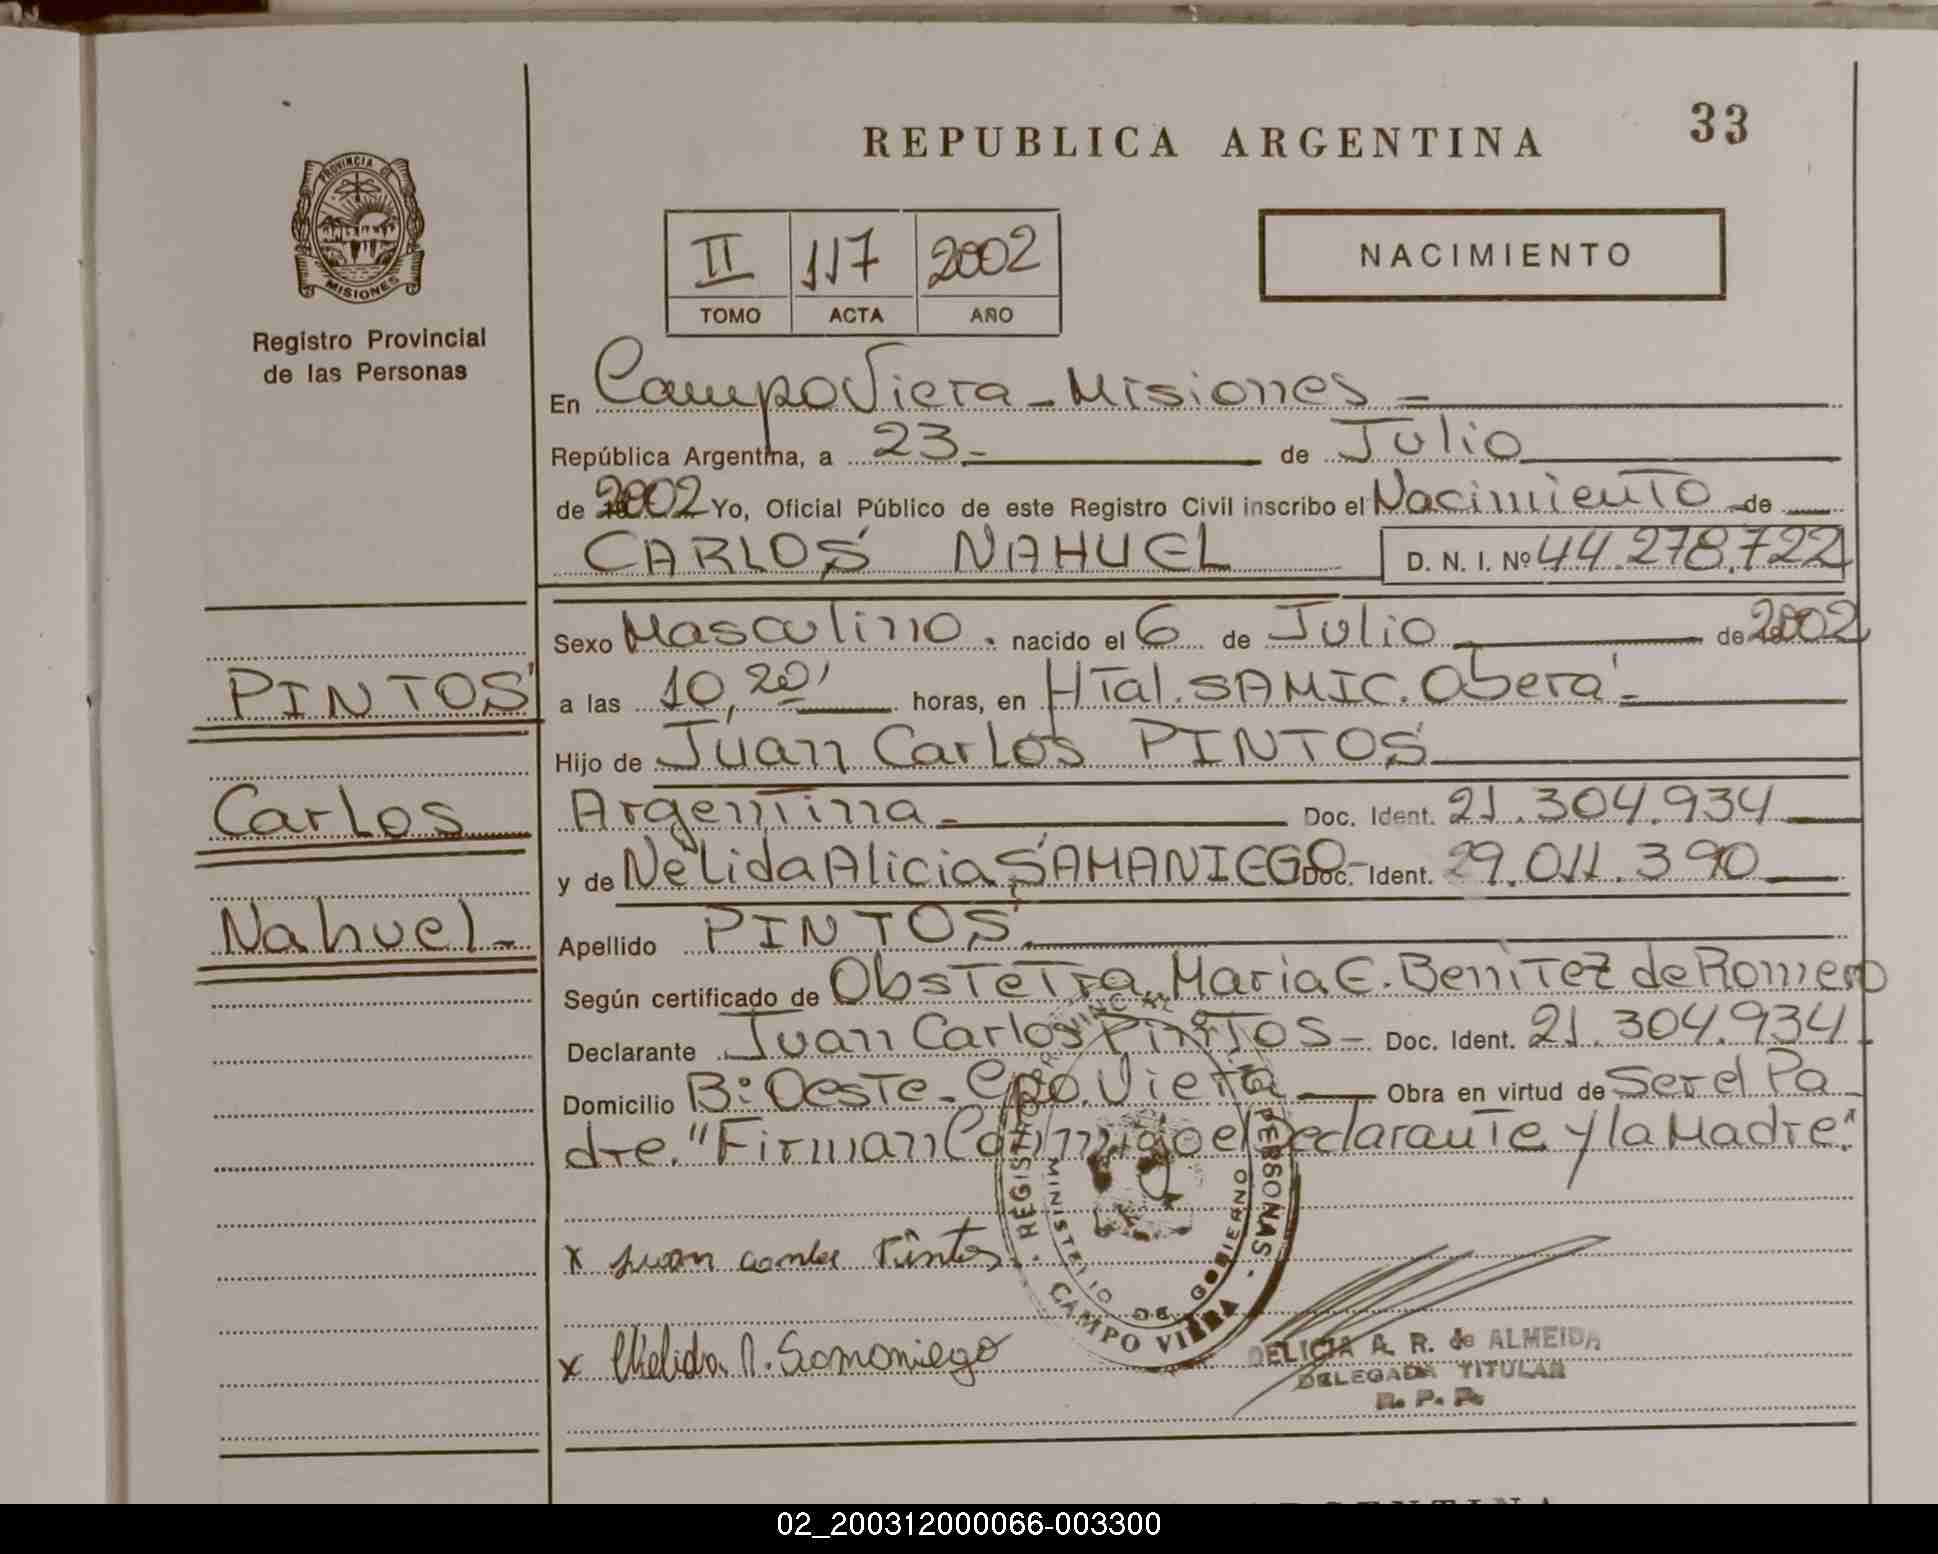 REPUBLICA ARGENTINA
33
PROVINCIA DE
MISIONES
Registro Provincial
de las Personas
II 117 2002
TOMO ACTA AÑO
NACIMIENTO
En Campo Viera - Misiones -
República Argentina, a 23- de Julio
de 2002 Yo, Oficial Público de este Registro Civil inscribo el Nacimiento de
CARLOS NAHUEL D. N. I. Nº 44.278.722
Sexo Masculino. nacido el 6 de Julio de 2002
PINTOS
a las 10,20' horas, en HTal. SAMIC. Oberá -
Hijo de Juan Carlos PINTOS
Carlos
Argentina - Doc. Ident. 21.304.934
y de Nelida Alicia SAMANIEGO - Doc. Ident. 29.011.390
Nahuel -
Apellido PINTOS
Según certificado de Obstetra. Maria E. Benitez de Romero
Declarante Juan Carlos Pintos - Doc. Ident. 21.304.934
Domicilio Bº: Oeste - Cpo. Viera Obra en virtud de Ser el Pa
dre. "Firman Conmigo el Declarante y la Madre."
REGISTRO PROVINCIAL PERSONAS
MINISTERIO DE GOBIERNO
CAMPO VIERA
x Juan Carlos Pintos
x Nelida A. Samaniego
DELICIA A. R. de ALMEIDA
DELEGADA TITULAR
R. P. P.
ARGENTINA
02_200312000066-003300